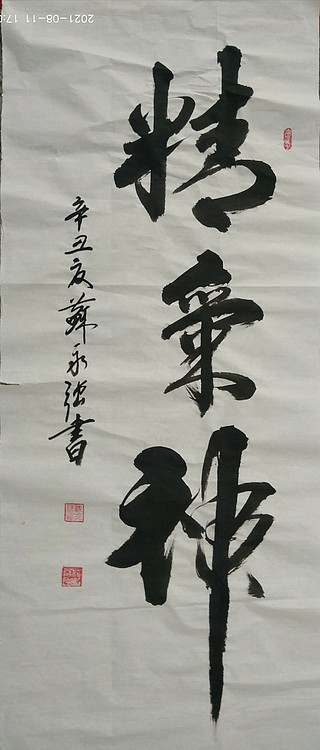 精氣神
辛丑夏薛永强書
2021-08-11 17: